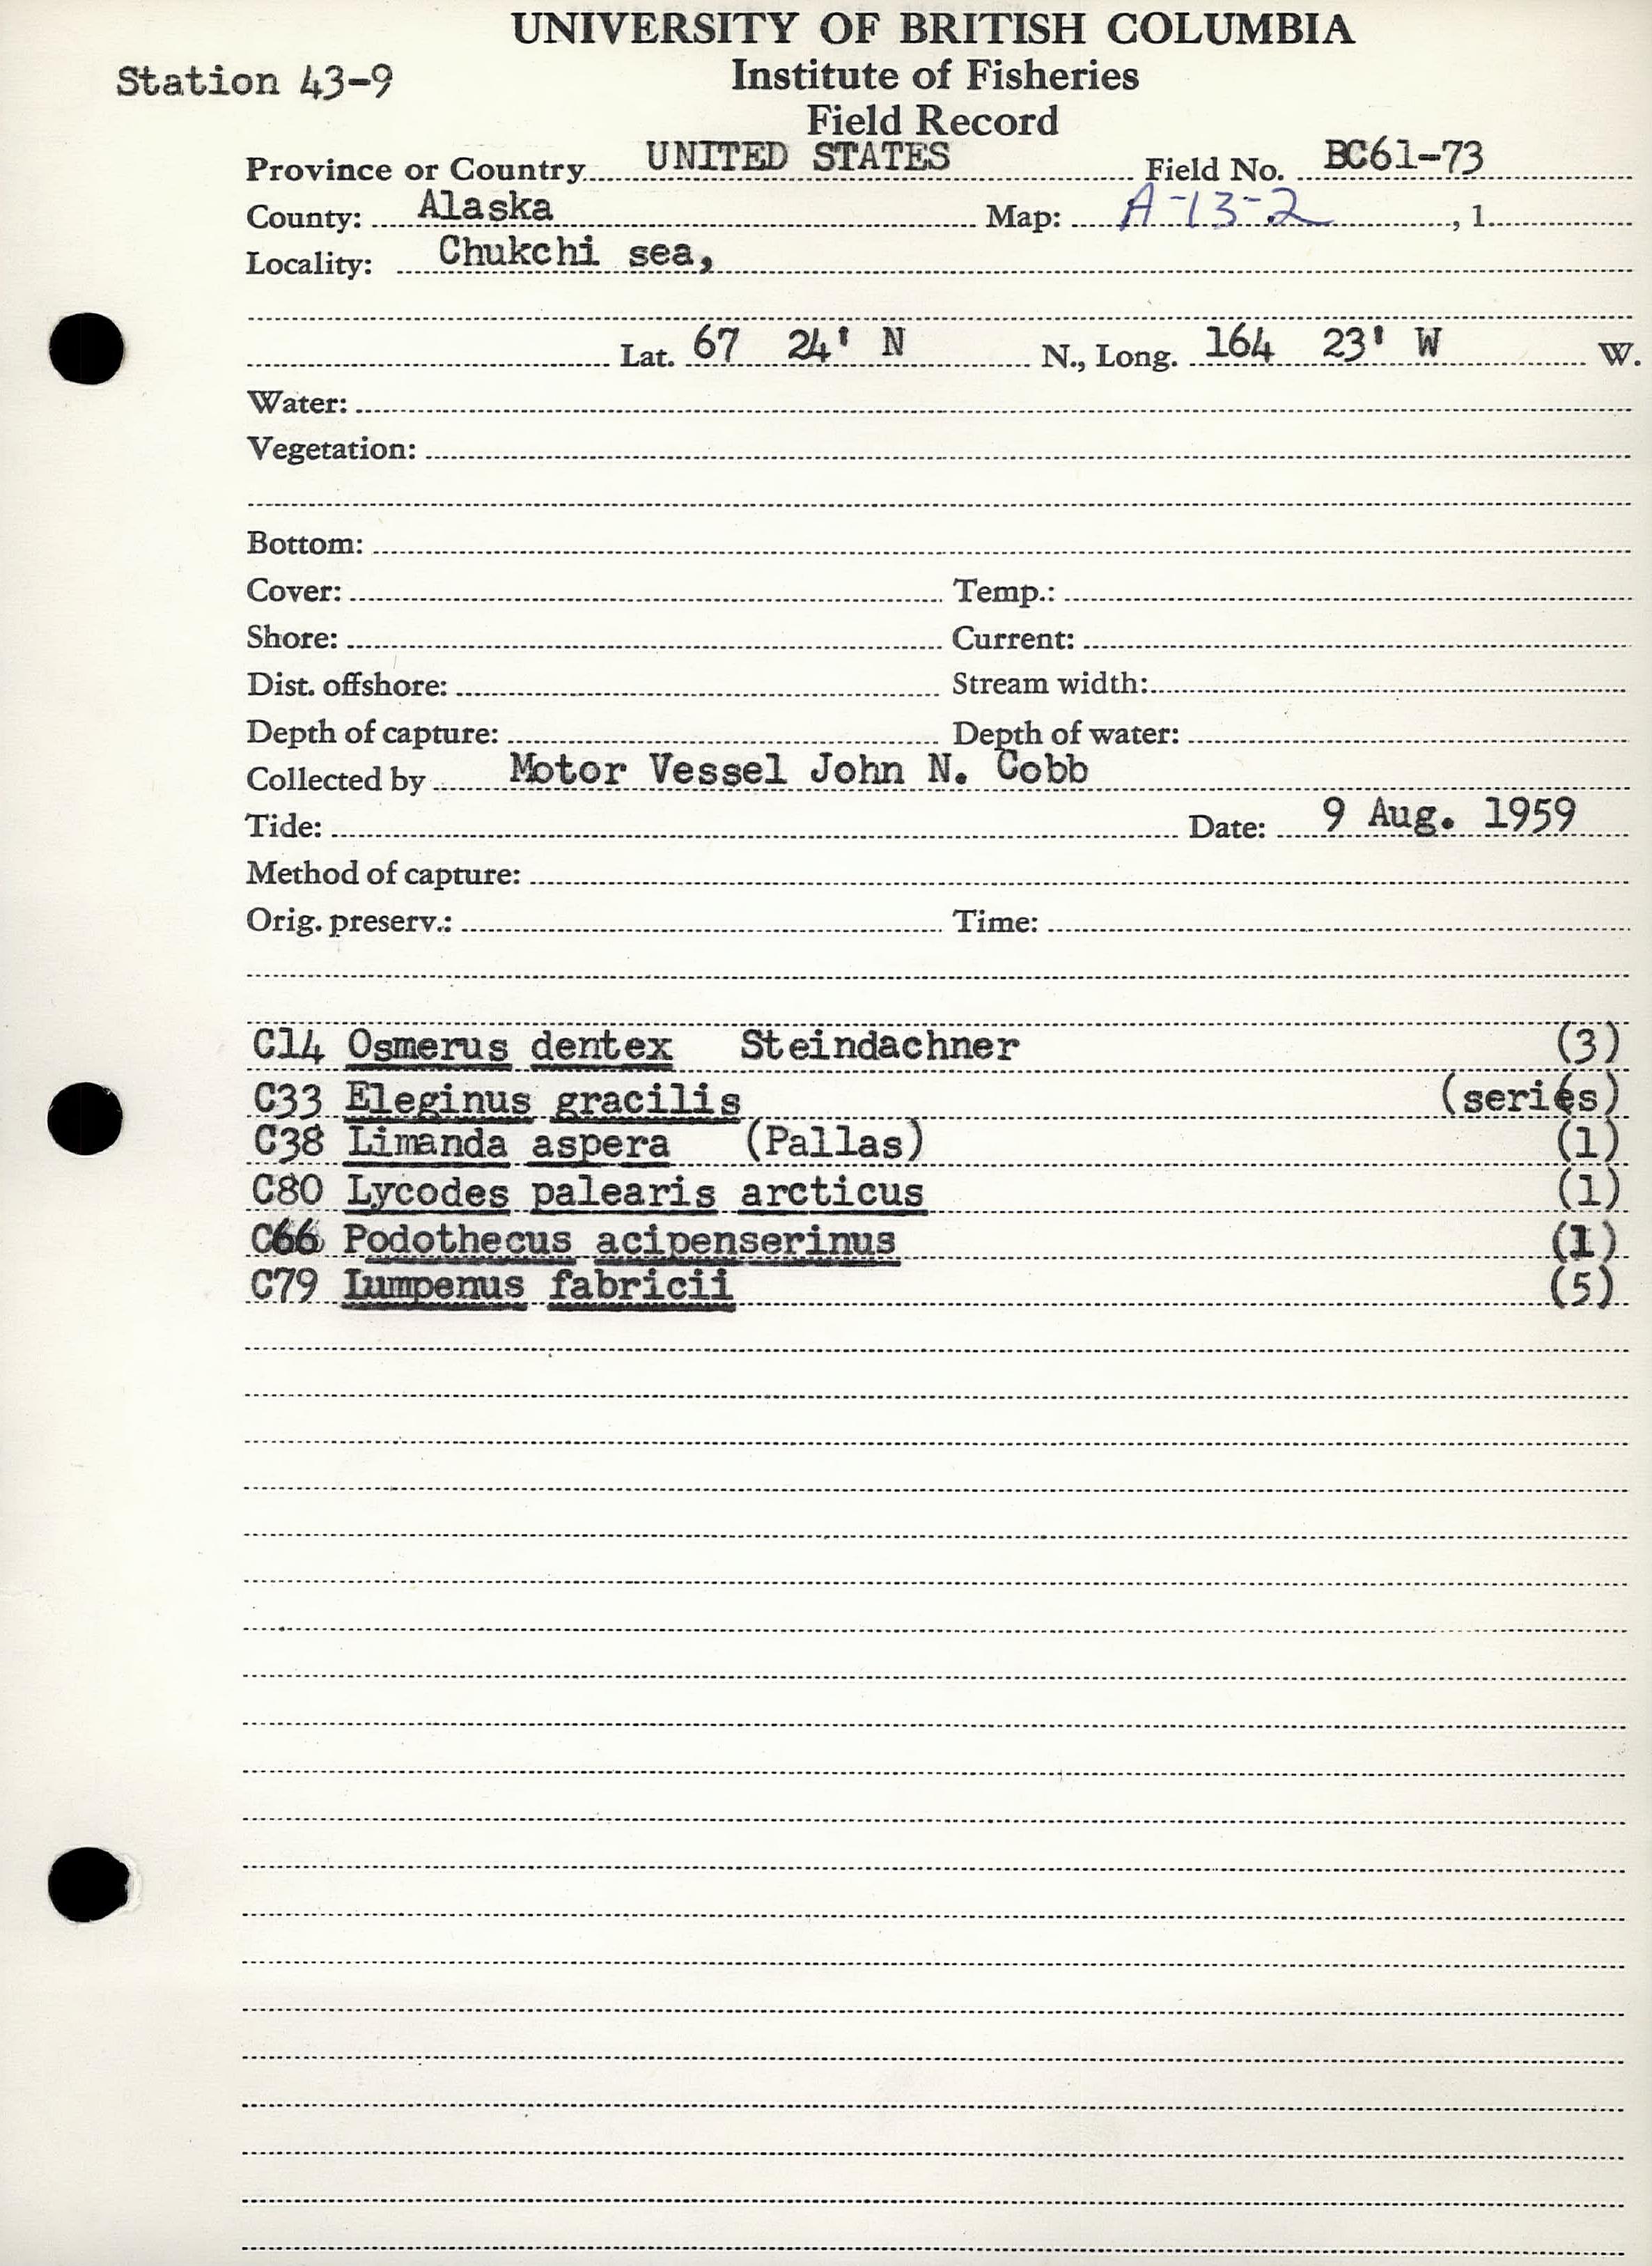 UNIVERSITY OF BRITISH COLUMBIA
Station 43-9
Institute of Fisheries
Field Record
Province or Country UNITED STATES Field No. BC61-73
County: Alaska Map: A-13-2 , 1
Locality: Chukchi sea,
Lat. 67 24' N N., Long. 164 23' W W.
Water:
Vegetation:
Bottom:
Cover: Temp.:
Shore: Current:
Dist. offshore: Stream width:
Depth of capture: Depth of water:
Collected by Motor Vessel John N. Cobb
Tide: Date: 9 Aug. 1959
Method of capture:
Orig. preserv.: Time:
C14 Osmerus dentex Steindachner (3)
C33 Eleginus gracilis (series)
C38 Limanda aspera (Pallas) (1)
C80 Lycodes palearis arcticus (1)
C66 Podothecus acipenserinus (1)
C79 Lumpenus fabricii (5)